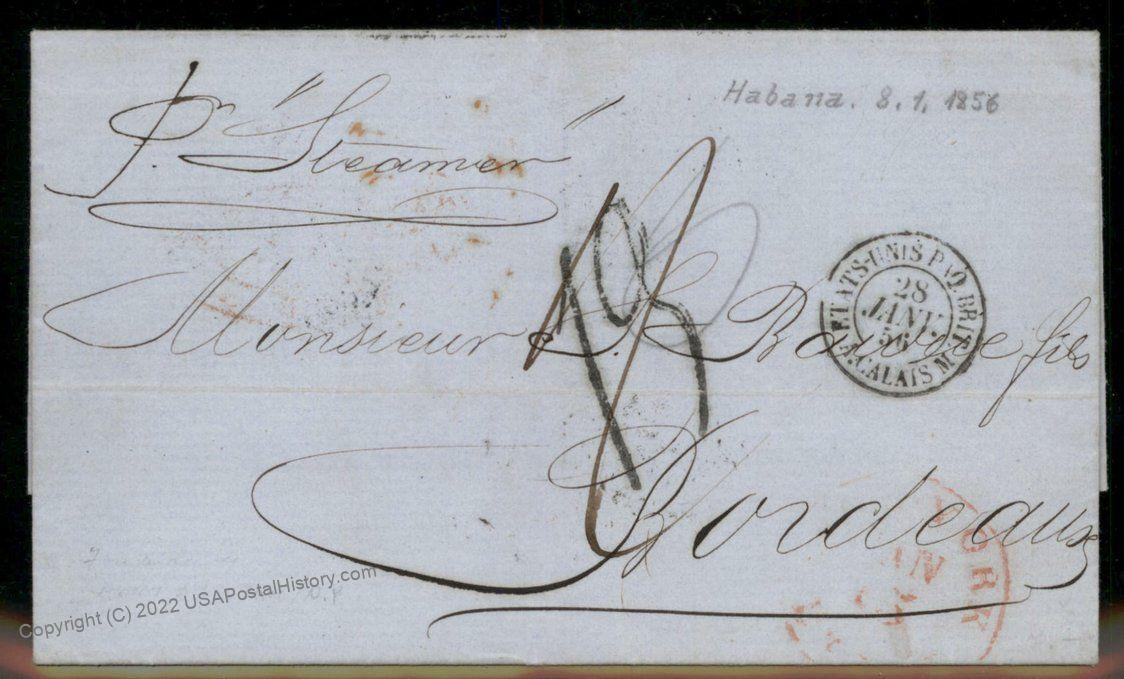 Habana. 8. 1. 1856
pr "Steamer"
Monsieur fils
ETATS-UNIS PAQ. BRIT. A. CALAIS M
28
JANV.
56
13
Bordeaux
YORK
JAN
Copyright (C) 2022 USAPostalHistory.com